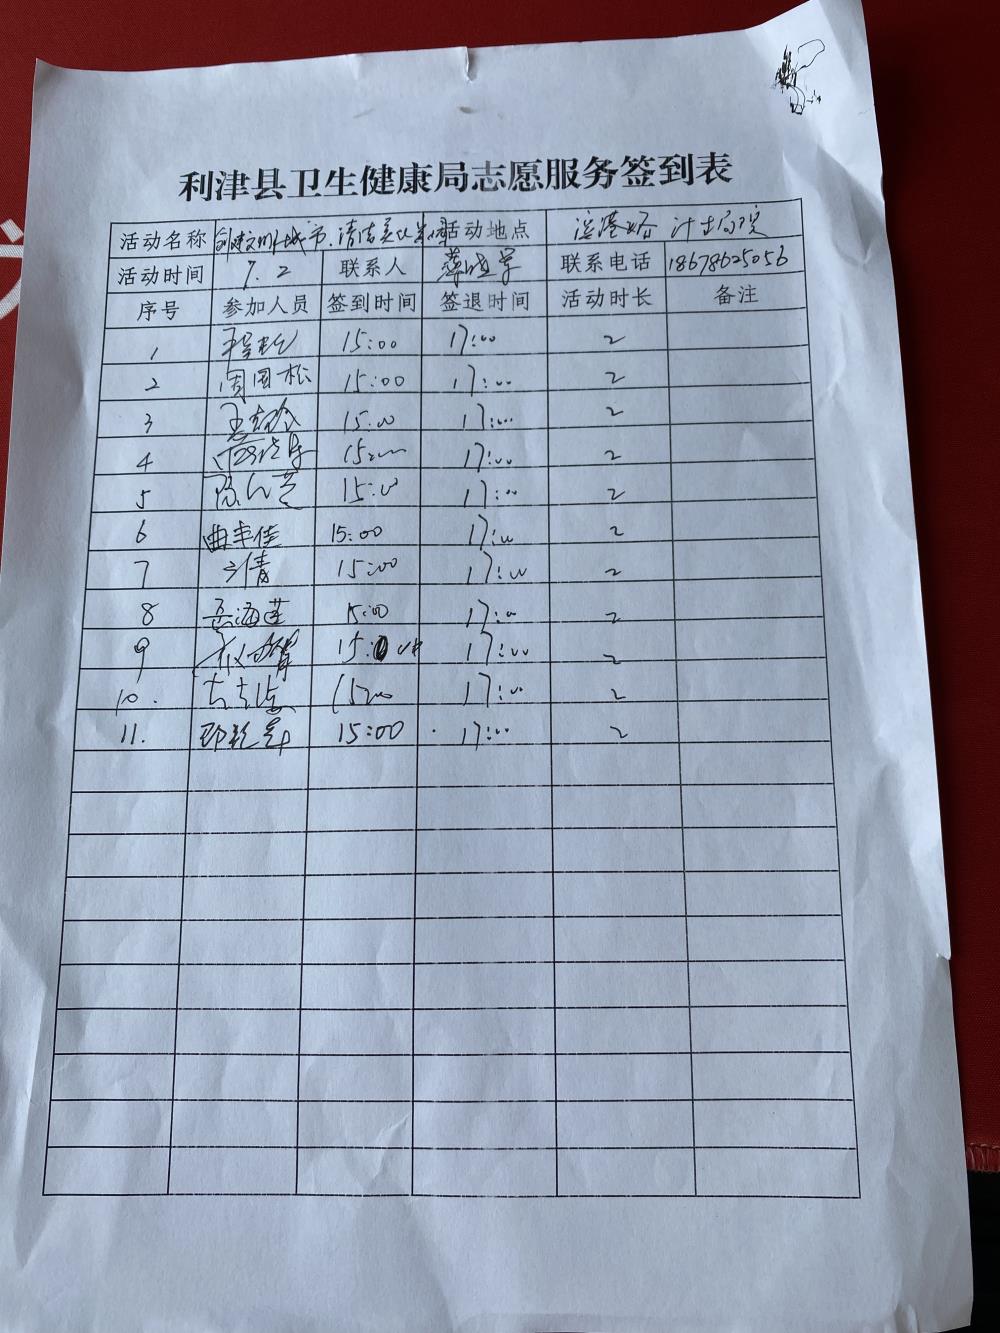 利津县卫生健康局志愿服务签到表
活动名称 创建文明城市、清洁美化 活动地点 滨港路 计生局院
活动时间 7.2 联系人 薛晓华 联系电话 18678625056
序号 参加人员 签到时间 签退时间 活动时长 备注
1 15:00 17:00 2
2 周国松 15:00 17:00 2
3 15:00 17:00 2
4 15:00 17:00 2
5 15:00 17:00 2
6 曲丰佳 15:00 17:00 2
7 15:00 17:00 2
8 岳海莲 15:00 17:00 2
9 15:00 17:00 2
10. 15:00 17:00 2
11. 15:00 17:00 2